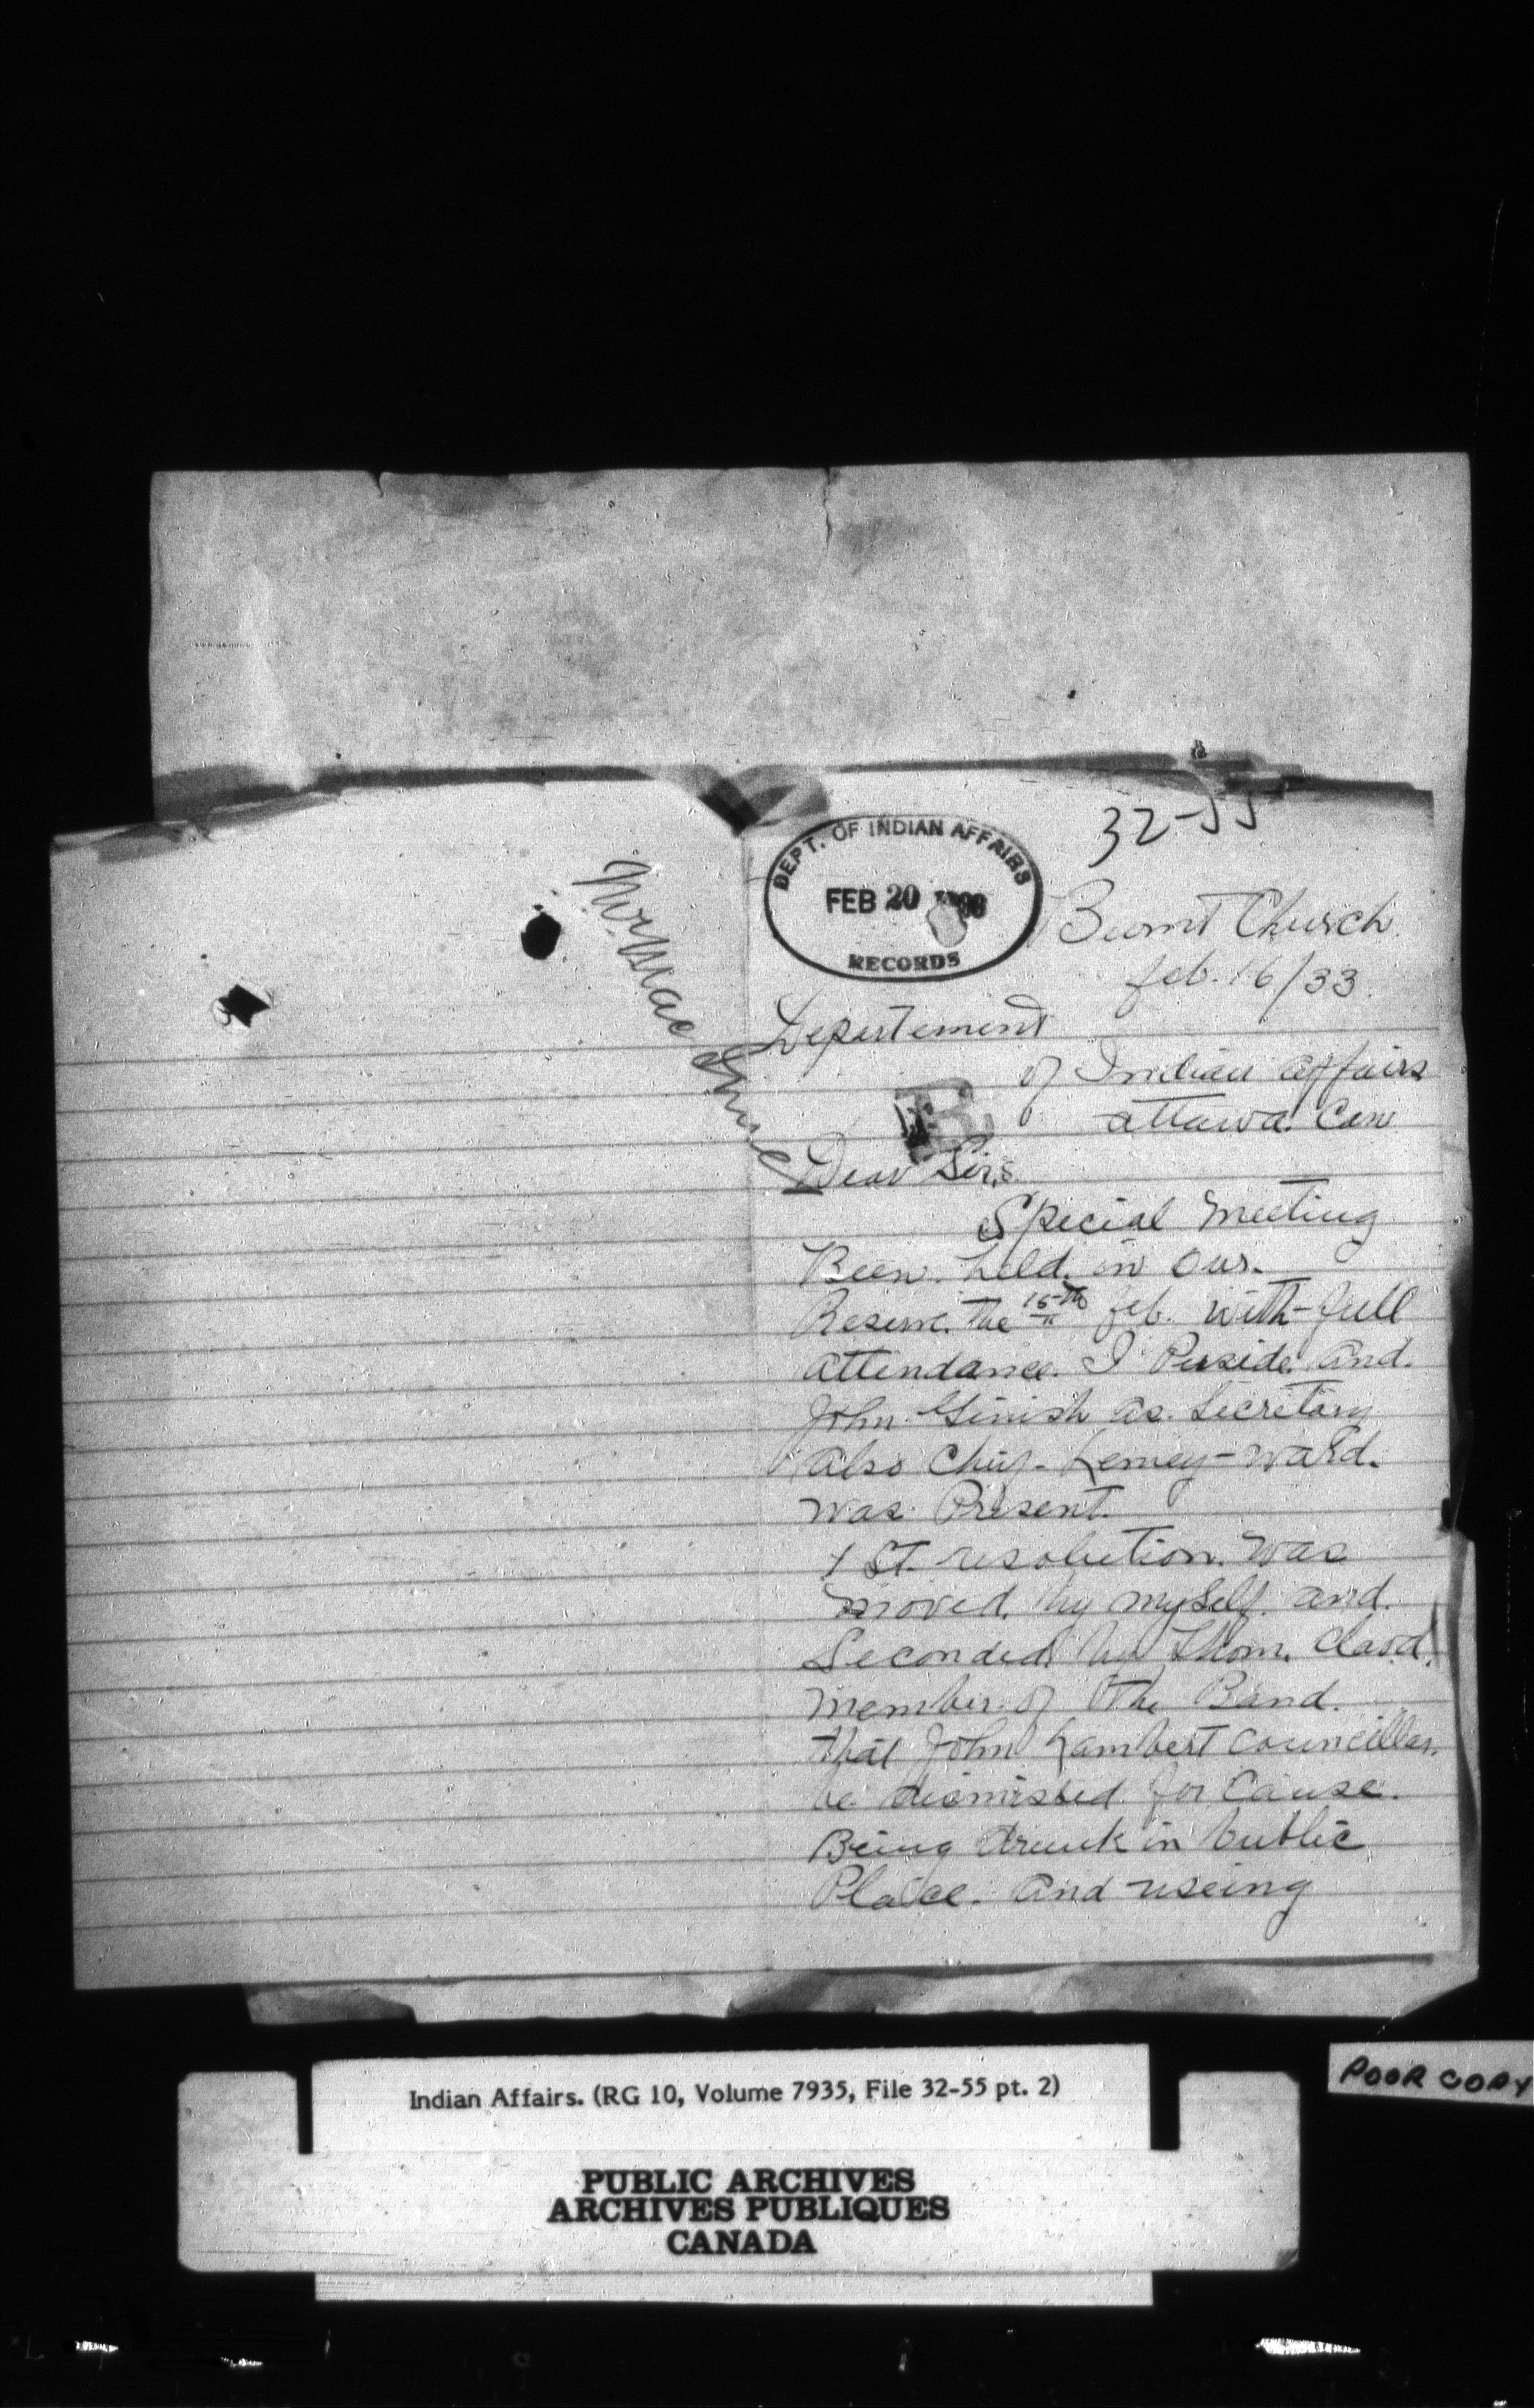 32-55
DEPT. OF INDIAN AFFAIRS
FEB 20
RECORDS
Burnt Church
feb. 16/33.
Departement
of Indian affairs
attawa. Can
B
Dear Sir,s
Special Meeting
Been. held. in Our.
Reserve. the 15th feb. with-full
attendance. I Preside. and.
John. Ginish as. Secretary
also Chief-Lemey-Ward.
was. Present.
1 St. resolution. was
moved. by myself. and.
Seconded. by Thom. Claod.
member. of the Band.
that John Lambert Councillor.
be dismissed for Cause.
Being drunk in Public
Place. and useing
Indian Affairs. (RG 10, Volume 7935, File 32-55 pt. 2)
POOR COPY
PUBLIC ARCHIVES
ARCHIVES PUBLIQUES
CANADA